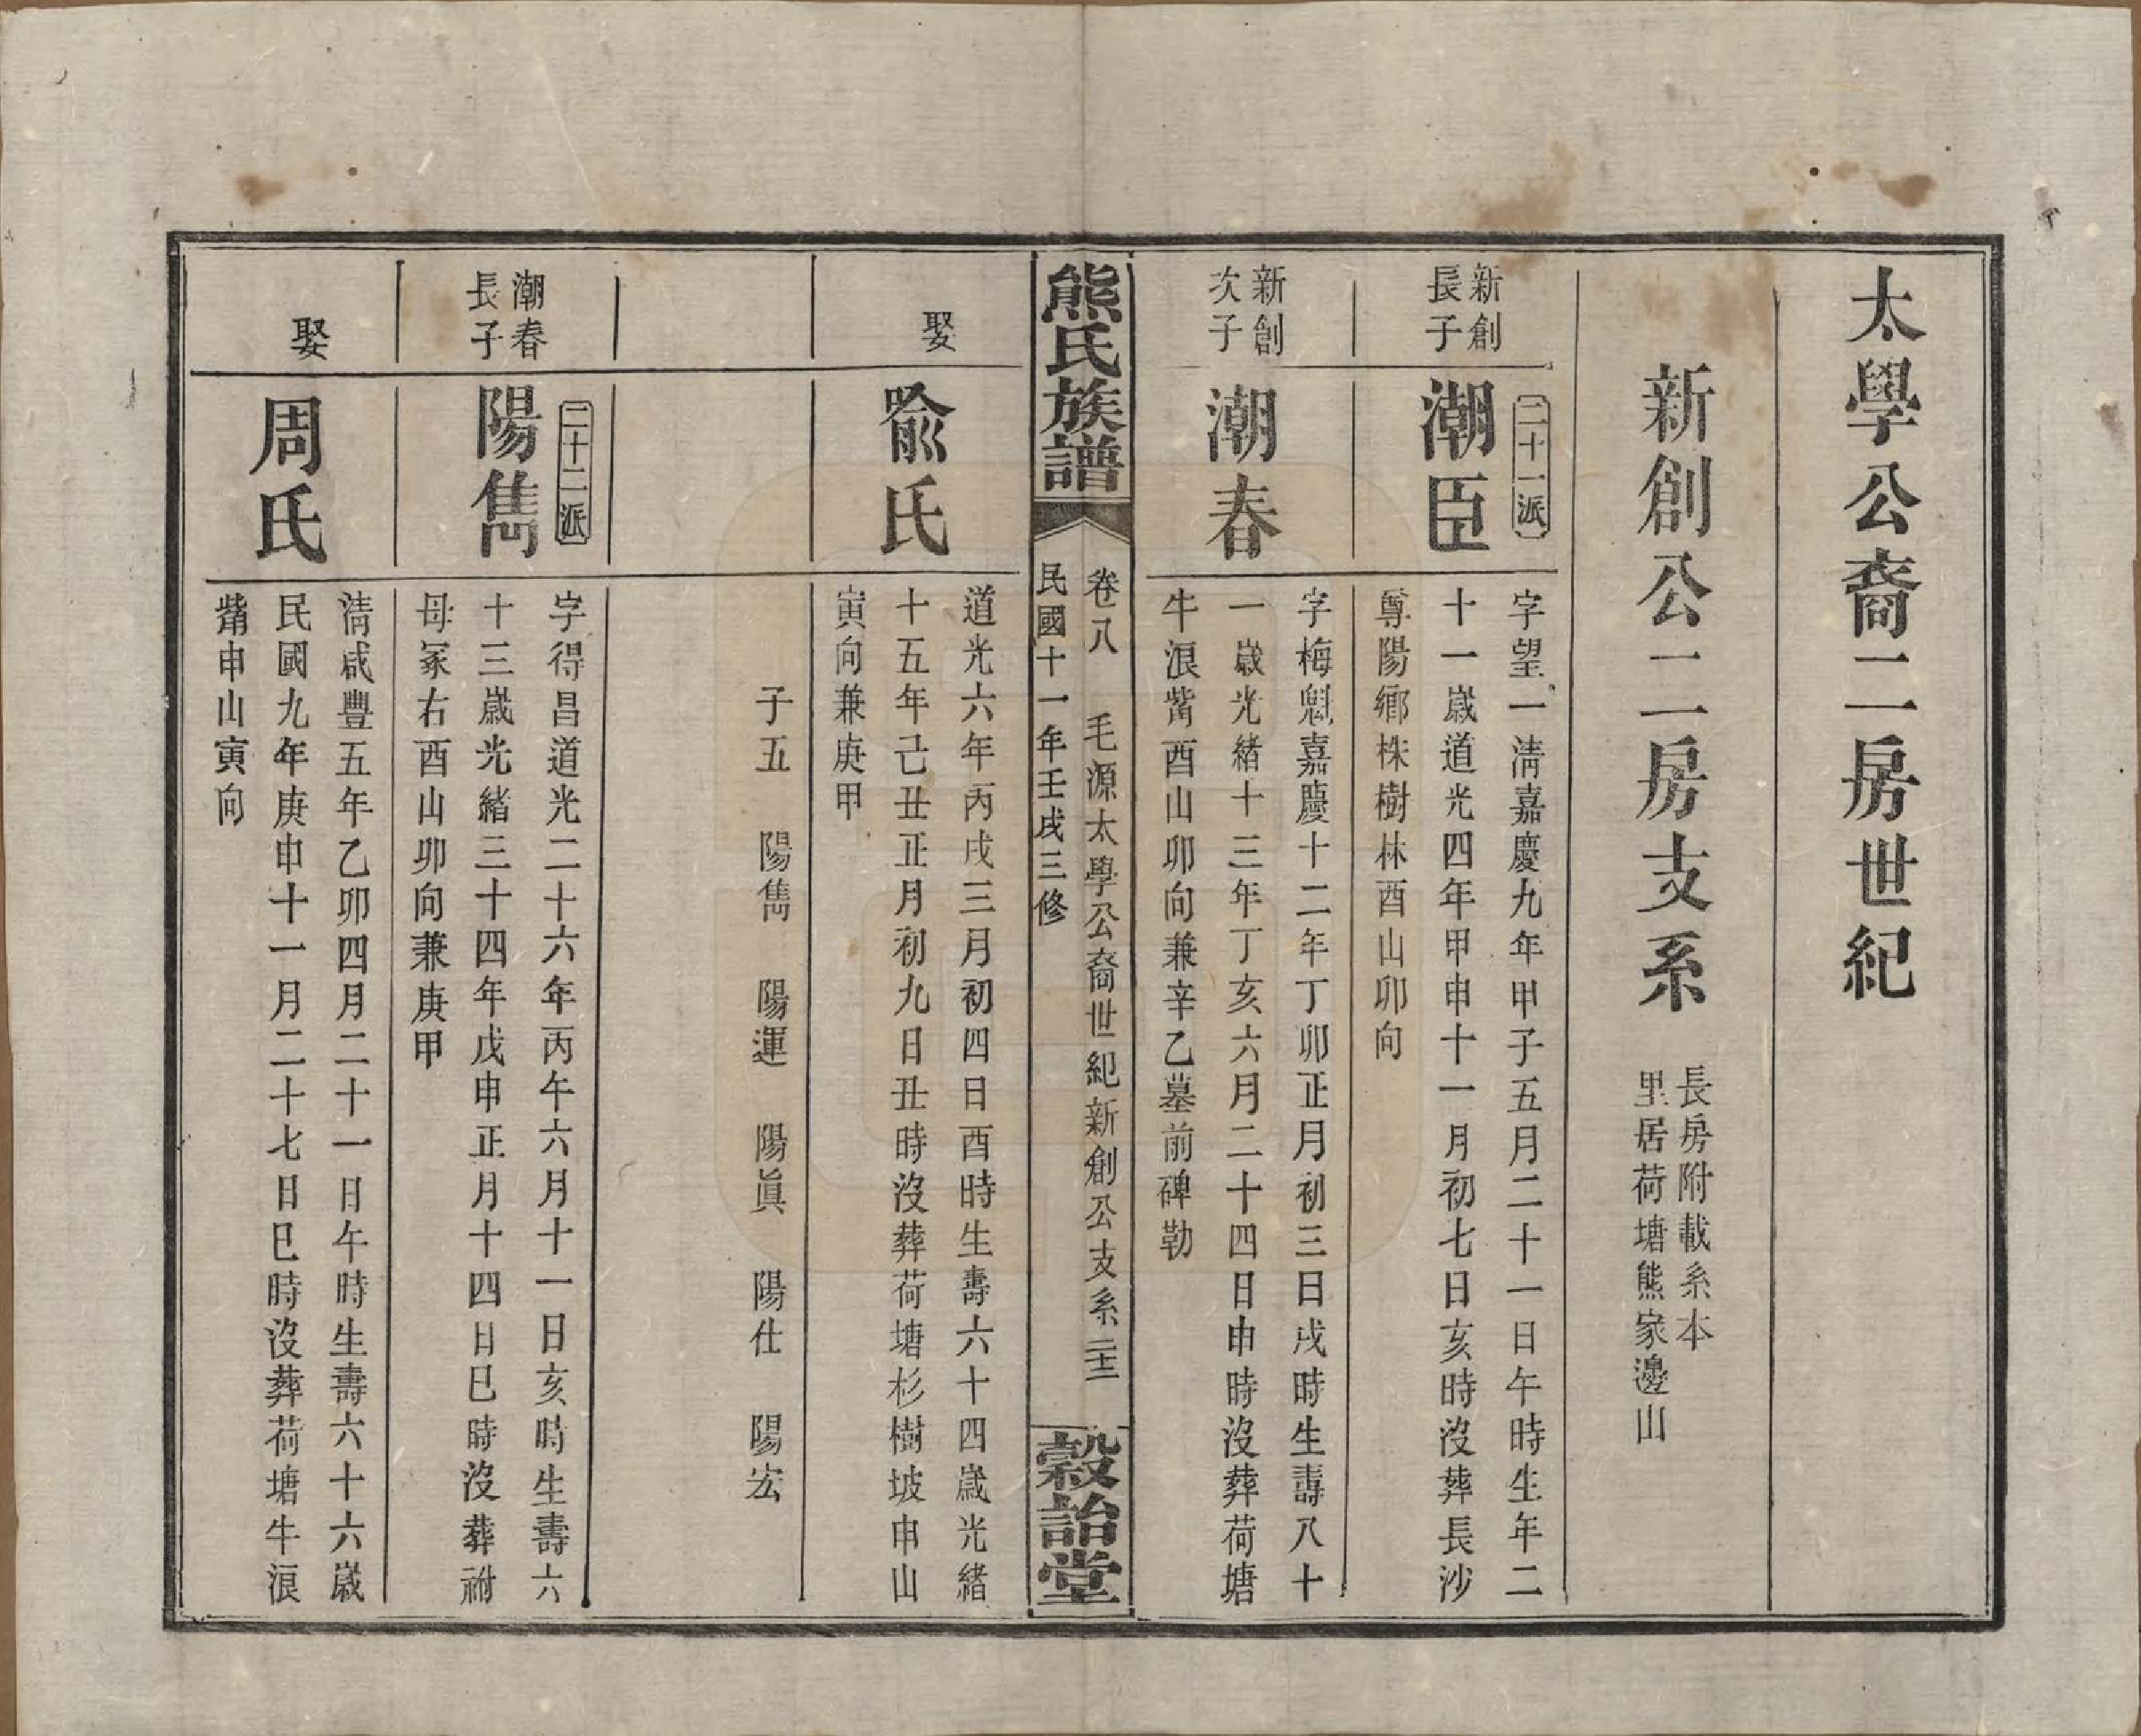 太學公裔二房世紀
新創公二房支系
長房附載系本
里居荷塘熊家邊山
新創
長子
二十一派
潮臣
字望一淸嘉慶九年甲子五月二十一日午時生年二
十一歲道光四年甲申十一月初七日亥時沒葬長沙
尊陽鄉株樹林酉山卯向
新創
次子
潮春
字梅魁嘉慶十二年丁卯正月初三日戌時生壽八十
一歲光緒十三年丁亥六月二十四日申時沒葬荷塘
牛浪觜酉山卯向兼辛乙墓前碑勒
熊氏族譜
卷八 毛源太學公裔世紀新創公支系
民國十一年壬戌三修
穀詒堂
娶
喩氏
道光六年丙戌三月初四日酉時生壽六十四歲光緒
十五年己丑正月初九日丑時沒葬荷塘杉樹坡申山
寅向兼庚甲
子五 陽雋 陽運 陽眞 陽仕 陽宏
潮春
長子
二十二派
陽雋
字得昌道光二十六年丙午六月十一日亥時生壽六
十三歲光緒三十四年戊申正月十四日巳時沒葬祔
母冢右酉山卯向兼庚甲
娶
周氏
淸咸豐五年乙卯四月二十一日午時生壽六十六歲
民國九年庚申十一月二十七日巳時沒葬荷塘牛浪
觜申山寅向